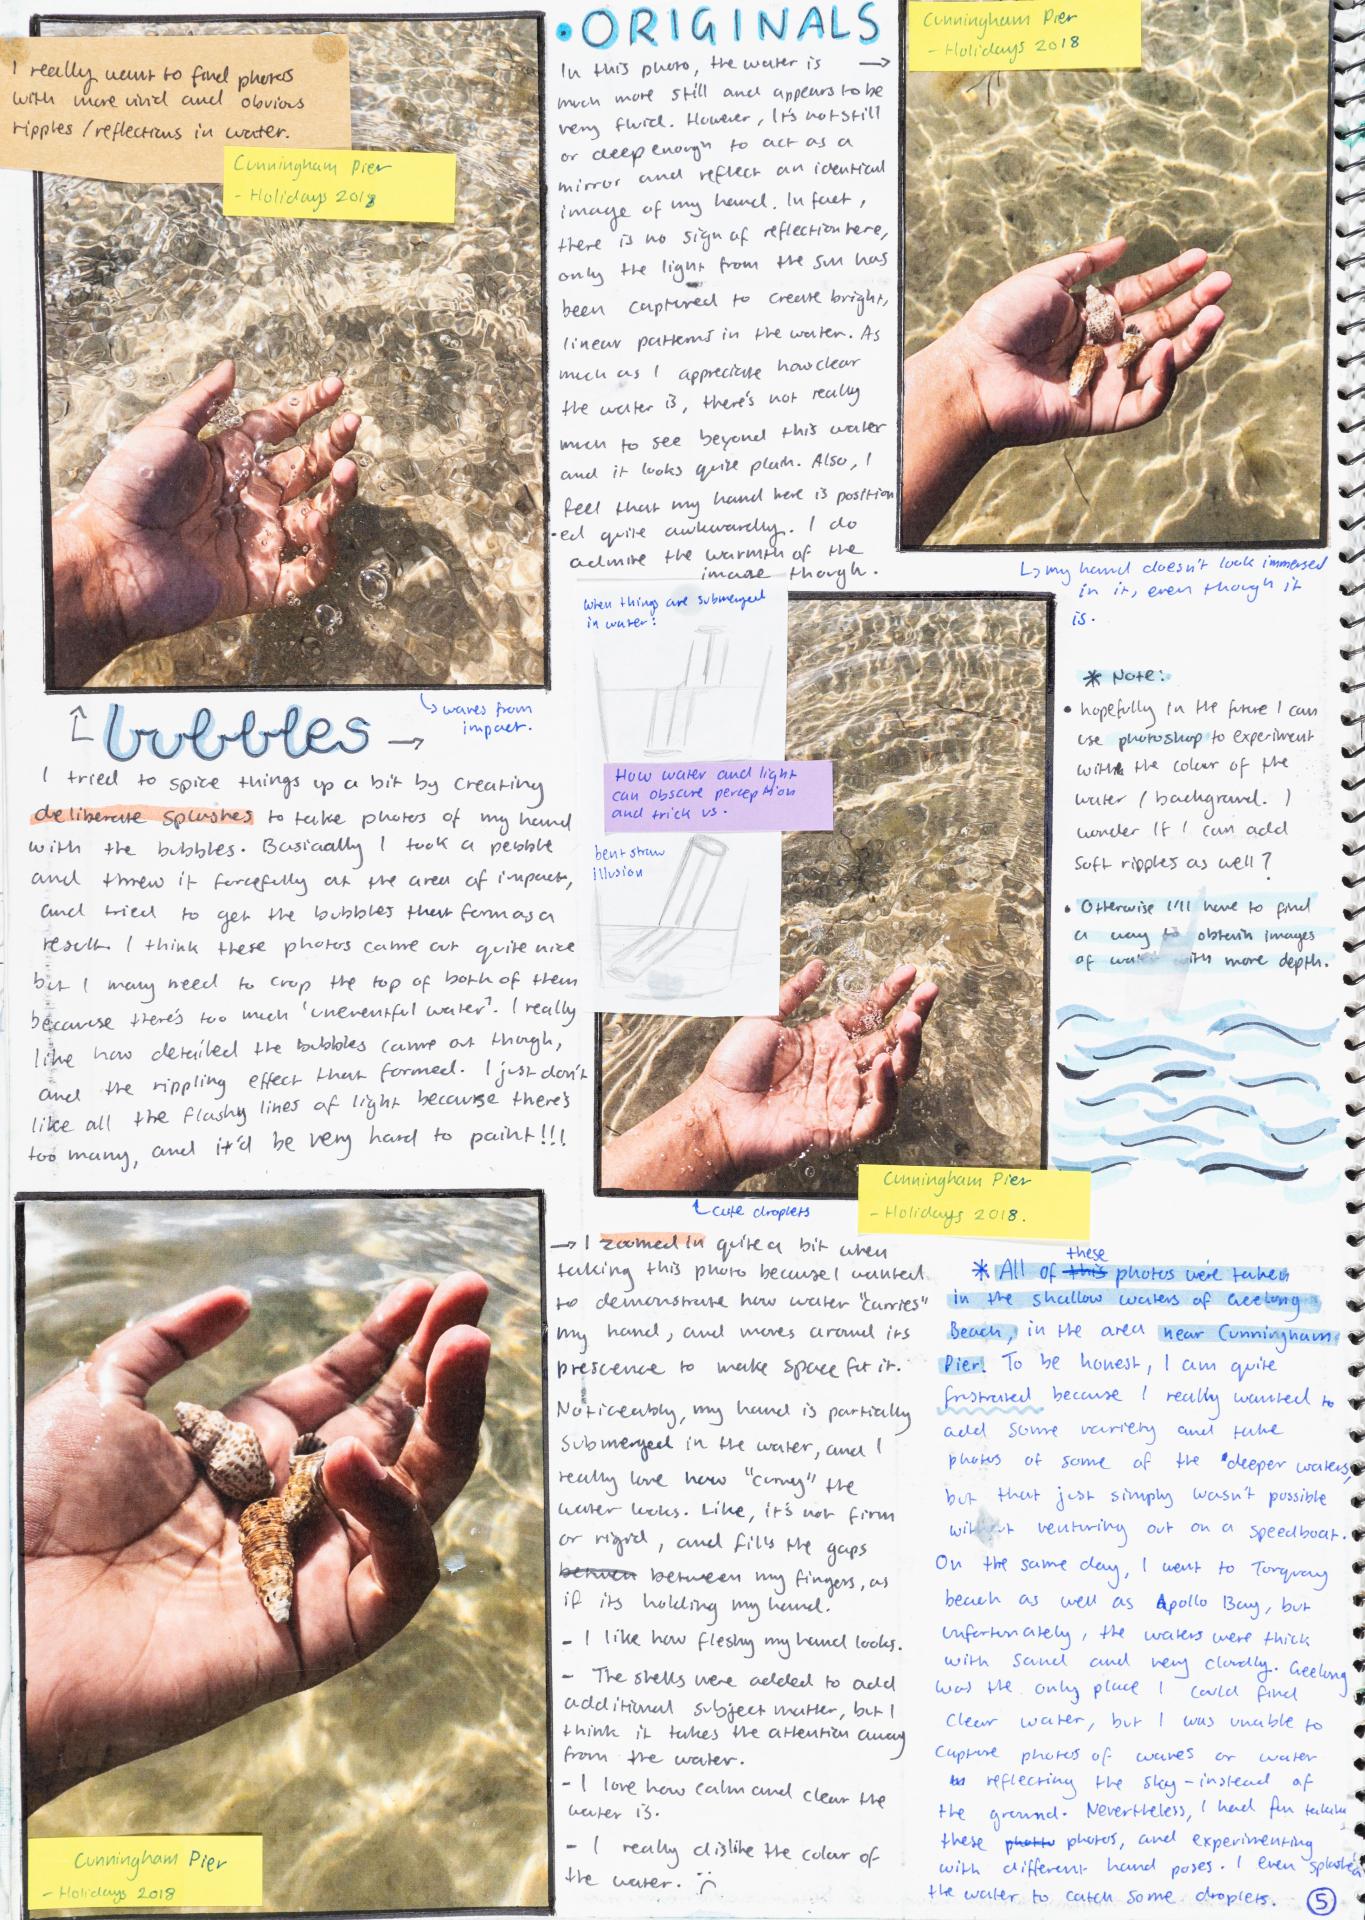 I really want to find photos
with more vivid and obvious
ripples / reflections in water.
Cunningham Pier
- Holidays 2018
• ORIGINALS
In this photo, the water is →
much more still and appears to be
very fluid. However, It's not still
or deep enough to act as a
mirror and reflect an identical
image of my hand. In fact,
there is no sign of reflection here,
only the light from the sun has
been captured to create bright,
linear patterns in the water. As
much as I appreciate how clear
the water is, there's not really
much to see beyond this water
and it looks quite plain. Also, I
feel that my hand here is position
-ed quite awkwardly. I do
admire the warmth of the
image though.
Cunningham Pier
- Holidays 2018
↳ my hand doesn't look immersed
in it, even though it
is.
↳ waves from
impact.
↑ bubbles →
I tried to spice things up a bit by creating
deliberate splashes to take photos of my hand
with the bubbles. Basically I took a pebble
and threw it forcefully at the area of impact,
and tried to get the bubbles that form as a
result. I think these photos came out quite nice
but I many need to crop the top of both of them
because there's too much 'uneventful water'. I really
like how detailed the bubbles came out though,
and the rippling effect that formed. I just don't
like all the flashy lines of light because there's
too many, and it'd be very hard to paint!!!
when things are submerged
in water:
How water and light
can obscure perception
and trick us.
bent straw
illusion
Cunningham Pier
- Holidays 2018.
↑ cute droplets
* Note:
• hopefully in the future I can
use photoshop to experiment
with the colour of the
water / background. I
wonder if I can add
soft ripples as well?
• Otherwise I'll have to find
a way to obtain images
of water with more depth.
Cunningham Pier
- Holidays 2018
→ I zoomed in quite a bit when
taking this photo because I wanted
to demonstrate how water "carries"
my hand, and moves around its
prescence to make space fit it.
Noticeably, my hand is partially
submerged in the water, and I
really love how "curvy" the
water looks. Like, it's not firm
or rigid, and fills the gaps
between between my fingers, as
if its holding my hand.
- I like how fleshy my hand looks.
- The shells were added to add
additional subject matter, but I
think it takes the attention away
from the water.
- I love how calm and clear the
water is.
- I really dislike the colour of
the water. :(
these
* All of this photos were taken
in the shallow waters of Geelong
Beach, in the area near Cunningham
Pier. To be honest, I am quite
frustrated because I really wanted to
add some variety and take
photos of some of the deeper waters,
but that just simply wasn't possible
without venturing out on a speedboat.
On the same day, I went to Torquay
beach as well as Apollo Bay, but
unfortunately, the waters were thick
with sand and very cloudy. Geelong
was the only place I could find
clear water, but I was unable to
capture photos of waves or water
reflecting the sky - instead of
the ground. Nevertheless, I had fun taking
these photo photos, and experimenting
with different hand poses. I even splashed
the water to catch some droplets.
5